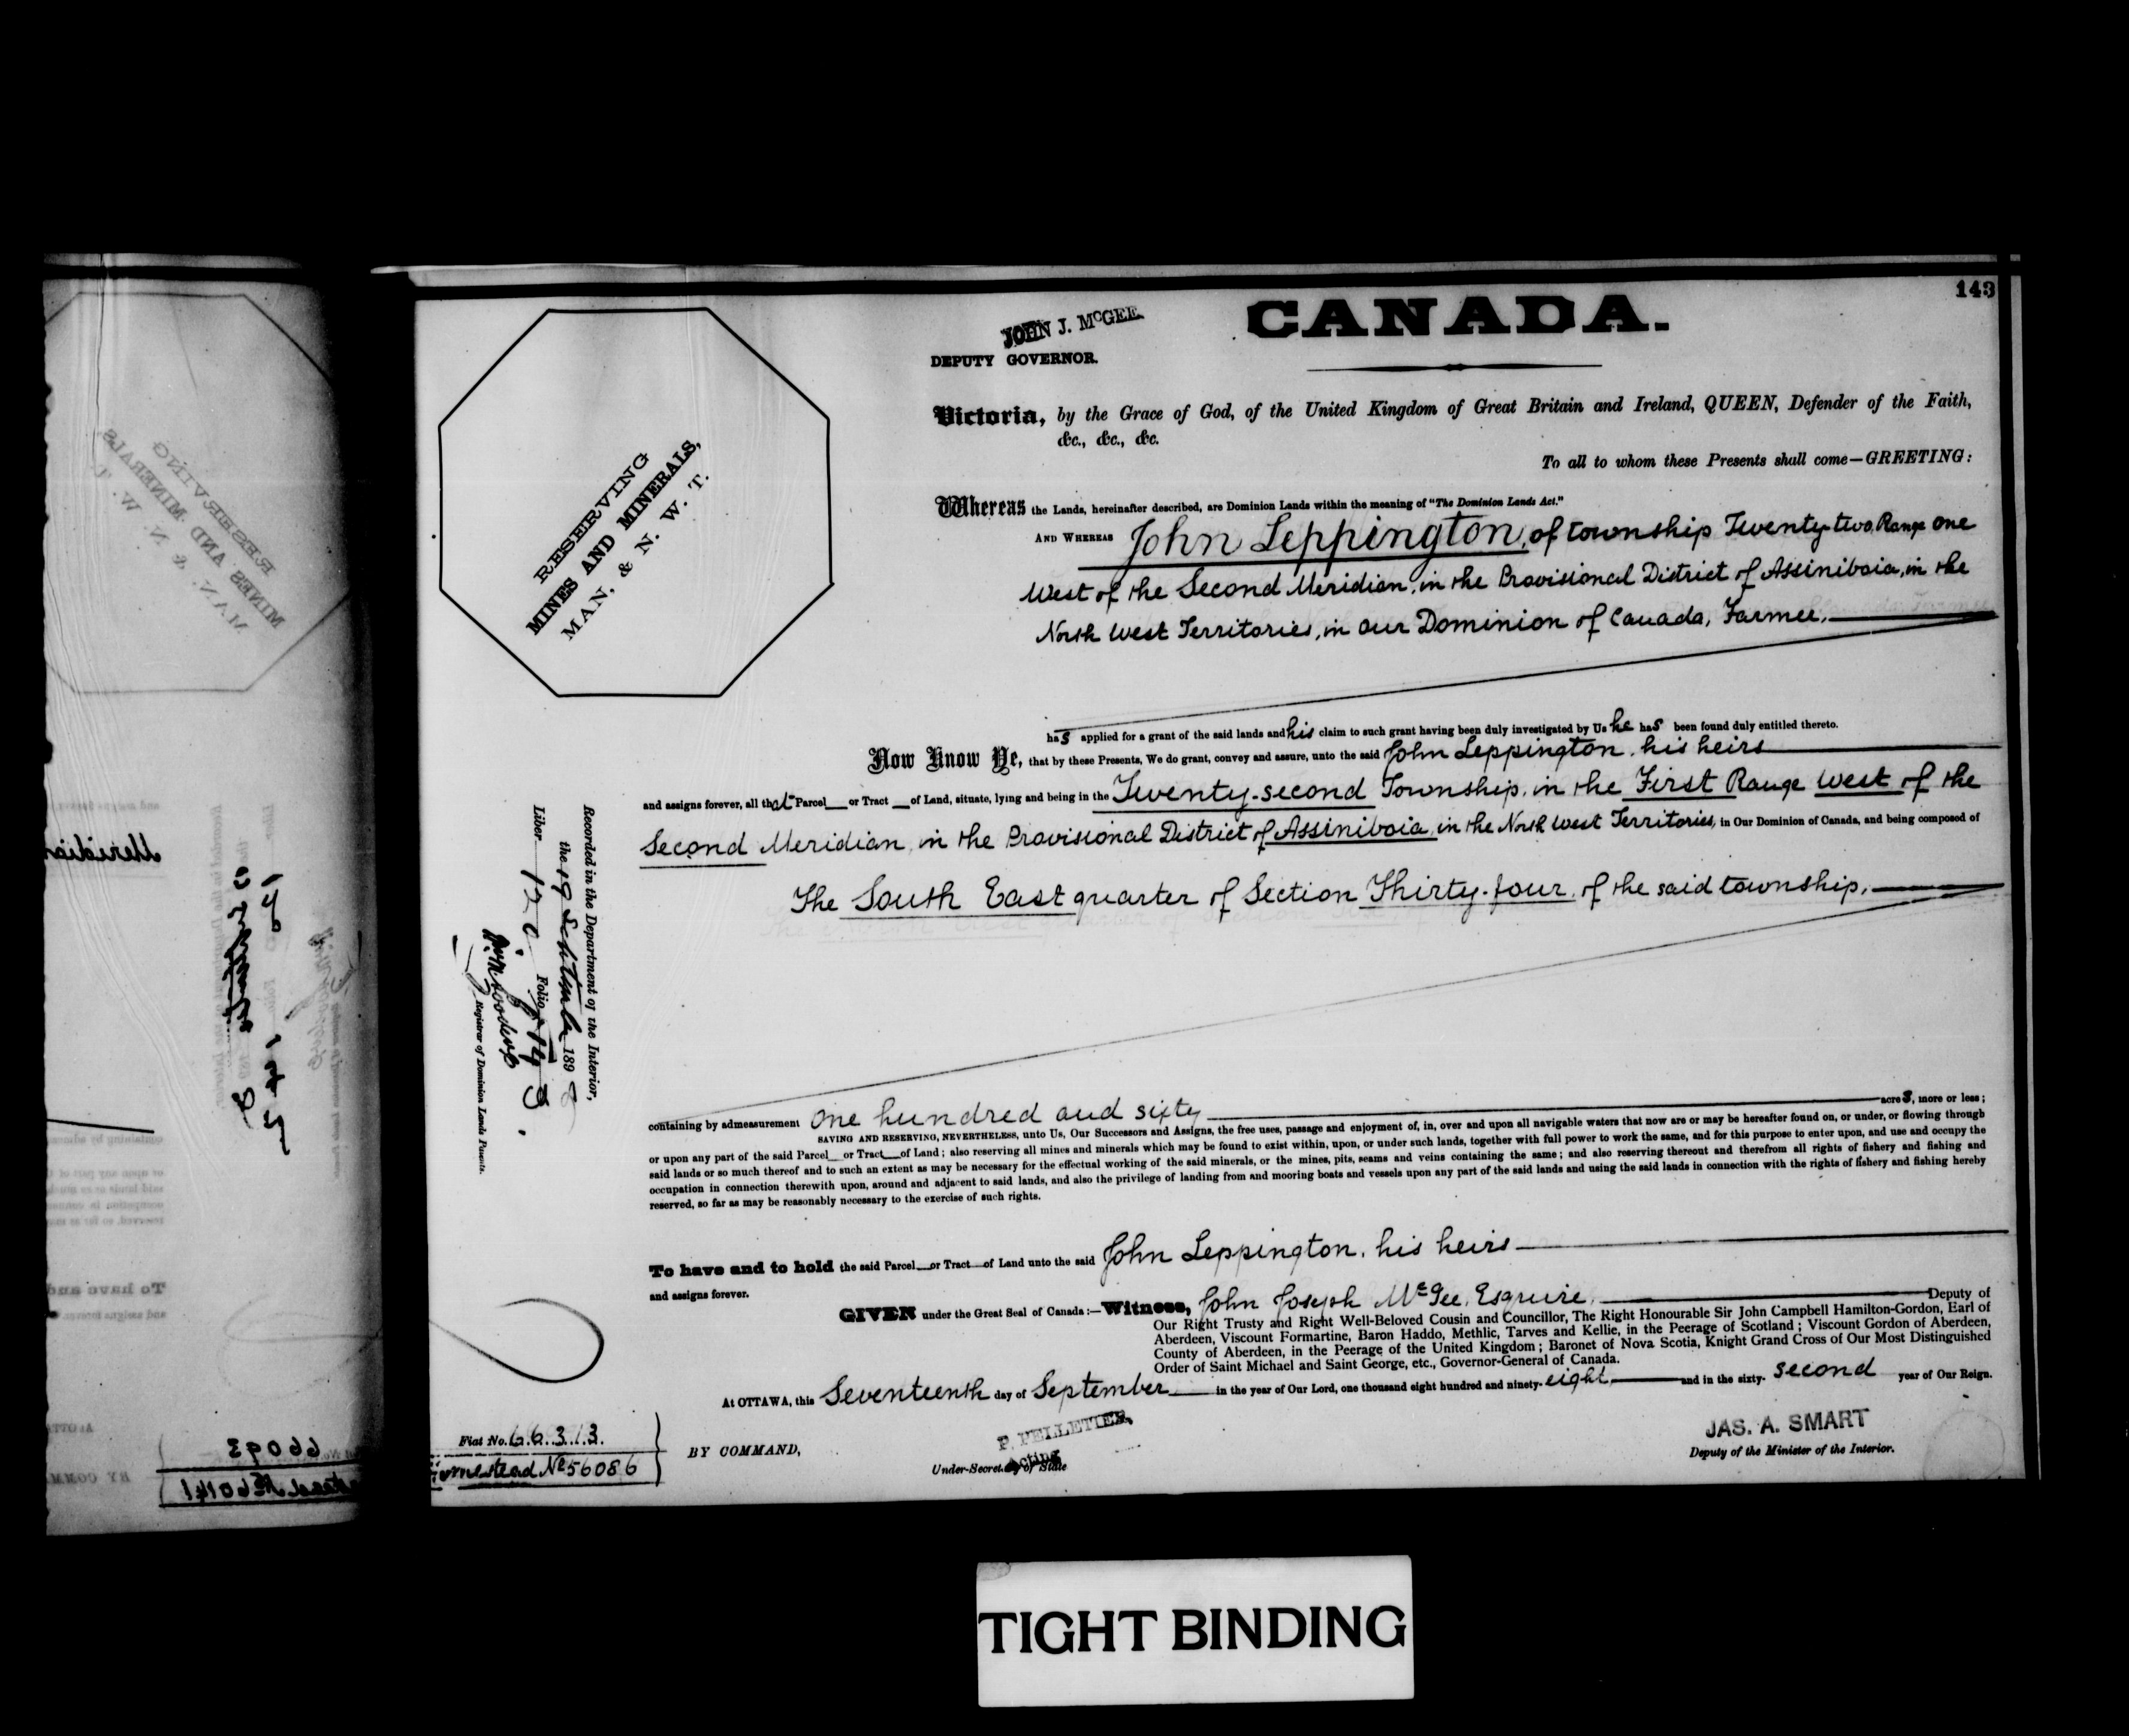 143
CANADA.
JOHN J. McGEE.
DEPUTY GOVERNOR.
RESERVING
MINES AND MINERALS,
MAN, & N. W. T.
Victoria, by the Grace of God, of the United Kingdom of Great Britain and Ireland, QUEEN, Defender of the Faith,
&c., &c., &c.
To all to whom these Presents shall come—GREETING:
Whereas the Lands, hereinafter described, are Dominion Lands within the meaning of "The Dominion Lands Act."
AND WHEREAS John Leppington, of township Twenty-two, Range one
West of the Second Meridian, in the Provisional District of Assiniboia, in the
North West Territories, in our Dominion of Canada, Farmer,
has applied for a grant of the said lands and his claim to such grant having been duly investigated by Us he has been found duly entitled thereto.
Now Know Ye, that by these Presents, We do grant, convey and assure, unto the said John Leppington, his heirs
and assigns forever, all that Parcel or Tract of Land, situate, lying and being in the Twenty-second Township, in the First Range West of the
Second Meridian, in the Provisional District of Assiniboia, in the North West Territories, in Our Dominion of Canada, and being composed of
The South East quarter of Section Thirty-four, of the said township,
Recorded in the Department of the Interior,
the 19 September 1898
Liber 120 Folio 143
Registrar of Dominion Lands Patents.
containing by admeasurement one hundred and sixty acres, more or less;
SAVING AND RESERVING, NEVERTHELESS, unto Us, Our Successors and Assigns, the free uses, passage and enjoyment of, in, over and upon all navigable waters that now are or may be hereafter found on, or under, or flowing through
or upon any part of the said Parcel or Tract of Land; also reserving all mines and minerals which may be found to exist within, upon, or under such lands, together with full power to work the same, and for this purpose to enter upon, and use and occupy the
said lands or so much thereof and to such an extent as may be necessary for the effectual working of the said minerals, or the mines, pits, seams and veins containing the same; and also reserving thereout and therefrom all rights of fishery and fishing and
occupation in connection therewith upon, around and adjacent to said lands, and also the privilege of landing from and mooring boats and vessels upon any part of the said lands and using the said lands in connection with the rights of fishery and fishing hereby
reserved, so far as may be reasonably necessary to the exercise of such rights.
To have and to hold the said Parcel or Tract of Land unto the said John Leppington, his heirs
and assigns forever.
GIVEN under the Great Seal of Canada:—Witness, John Joseph McGee, Esquire, Deputy of
Our Right Trusty and Right Well-Beloved Cousin and Councillor, The Right Honourable Sir John Campbell Hamilton-Gordon, Earl of
Aberdeen, Viscount Formartine, Baron Haddo, Methlic, Tarves and Kellie, in the Peerage of Scotland; Viscount Gordon of Aberdeen,
County of Aberdeen, in the Peerage of the United Kingdom; Baronet of Nova Scotia, Knight Grand Cross of Our Most Distinguished
Order of Saint Michael and Saint George, etc., Governor-General of Canada.
At OTTAWA, this Seventeenth day of September in the year of Our Lord, one thousand eight hundred and ninety-eight and in the sixty-second year of Our Reign.
Fiat No. 66313.
Homestead No 56086
BY COMMAND,
P. PELLETIER,
Acting
Under-Secretary of State
JAS. A. SMART
Deputy of the Minister of the Interior.
TIGHT BINDING